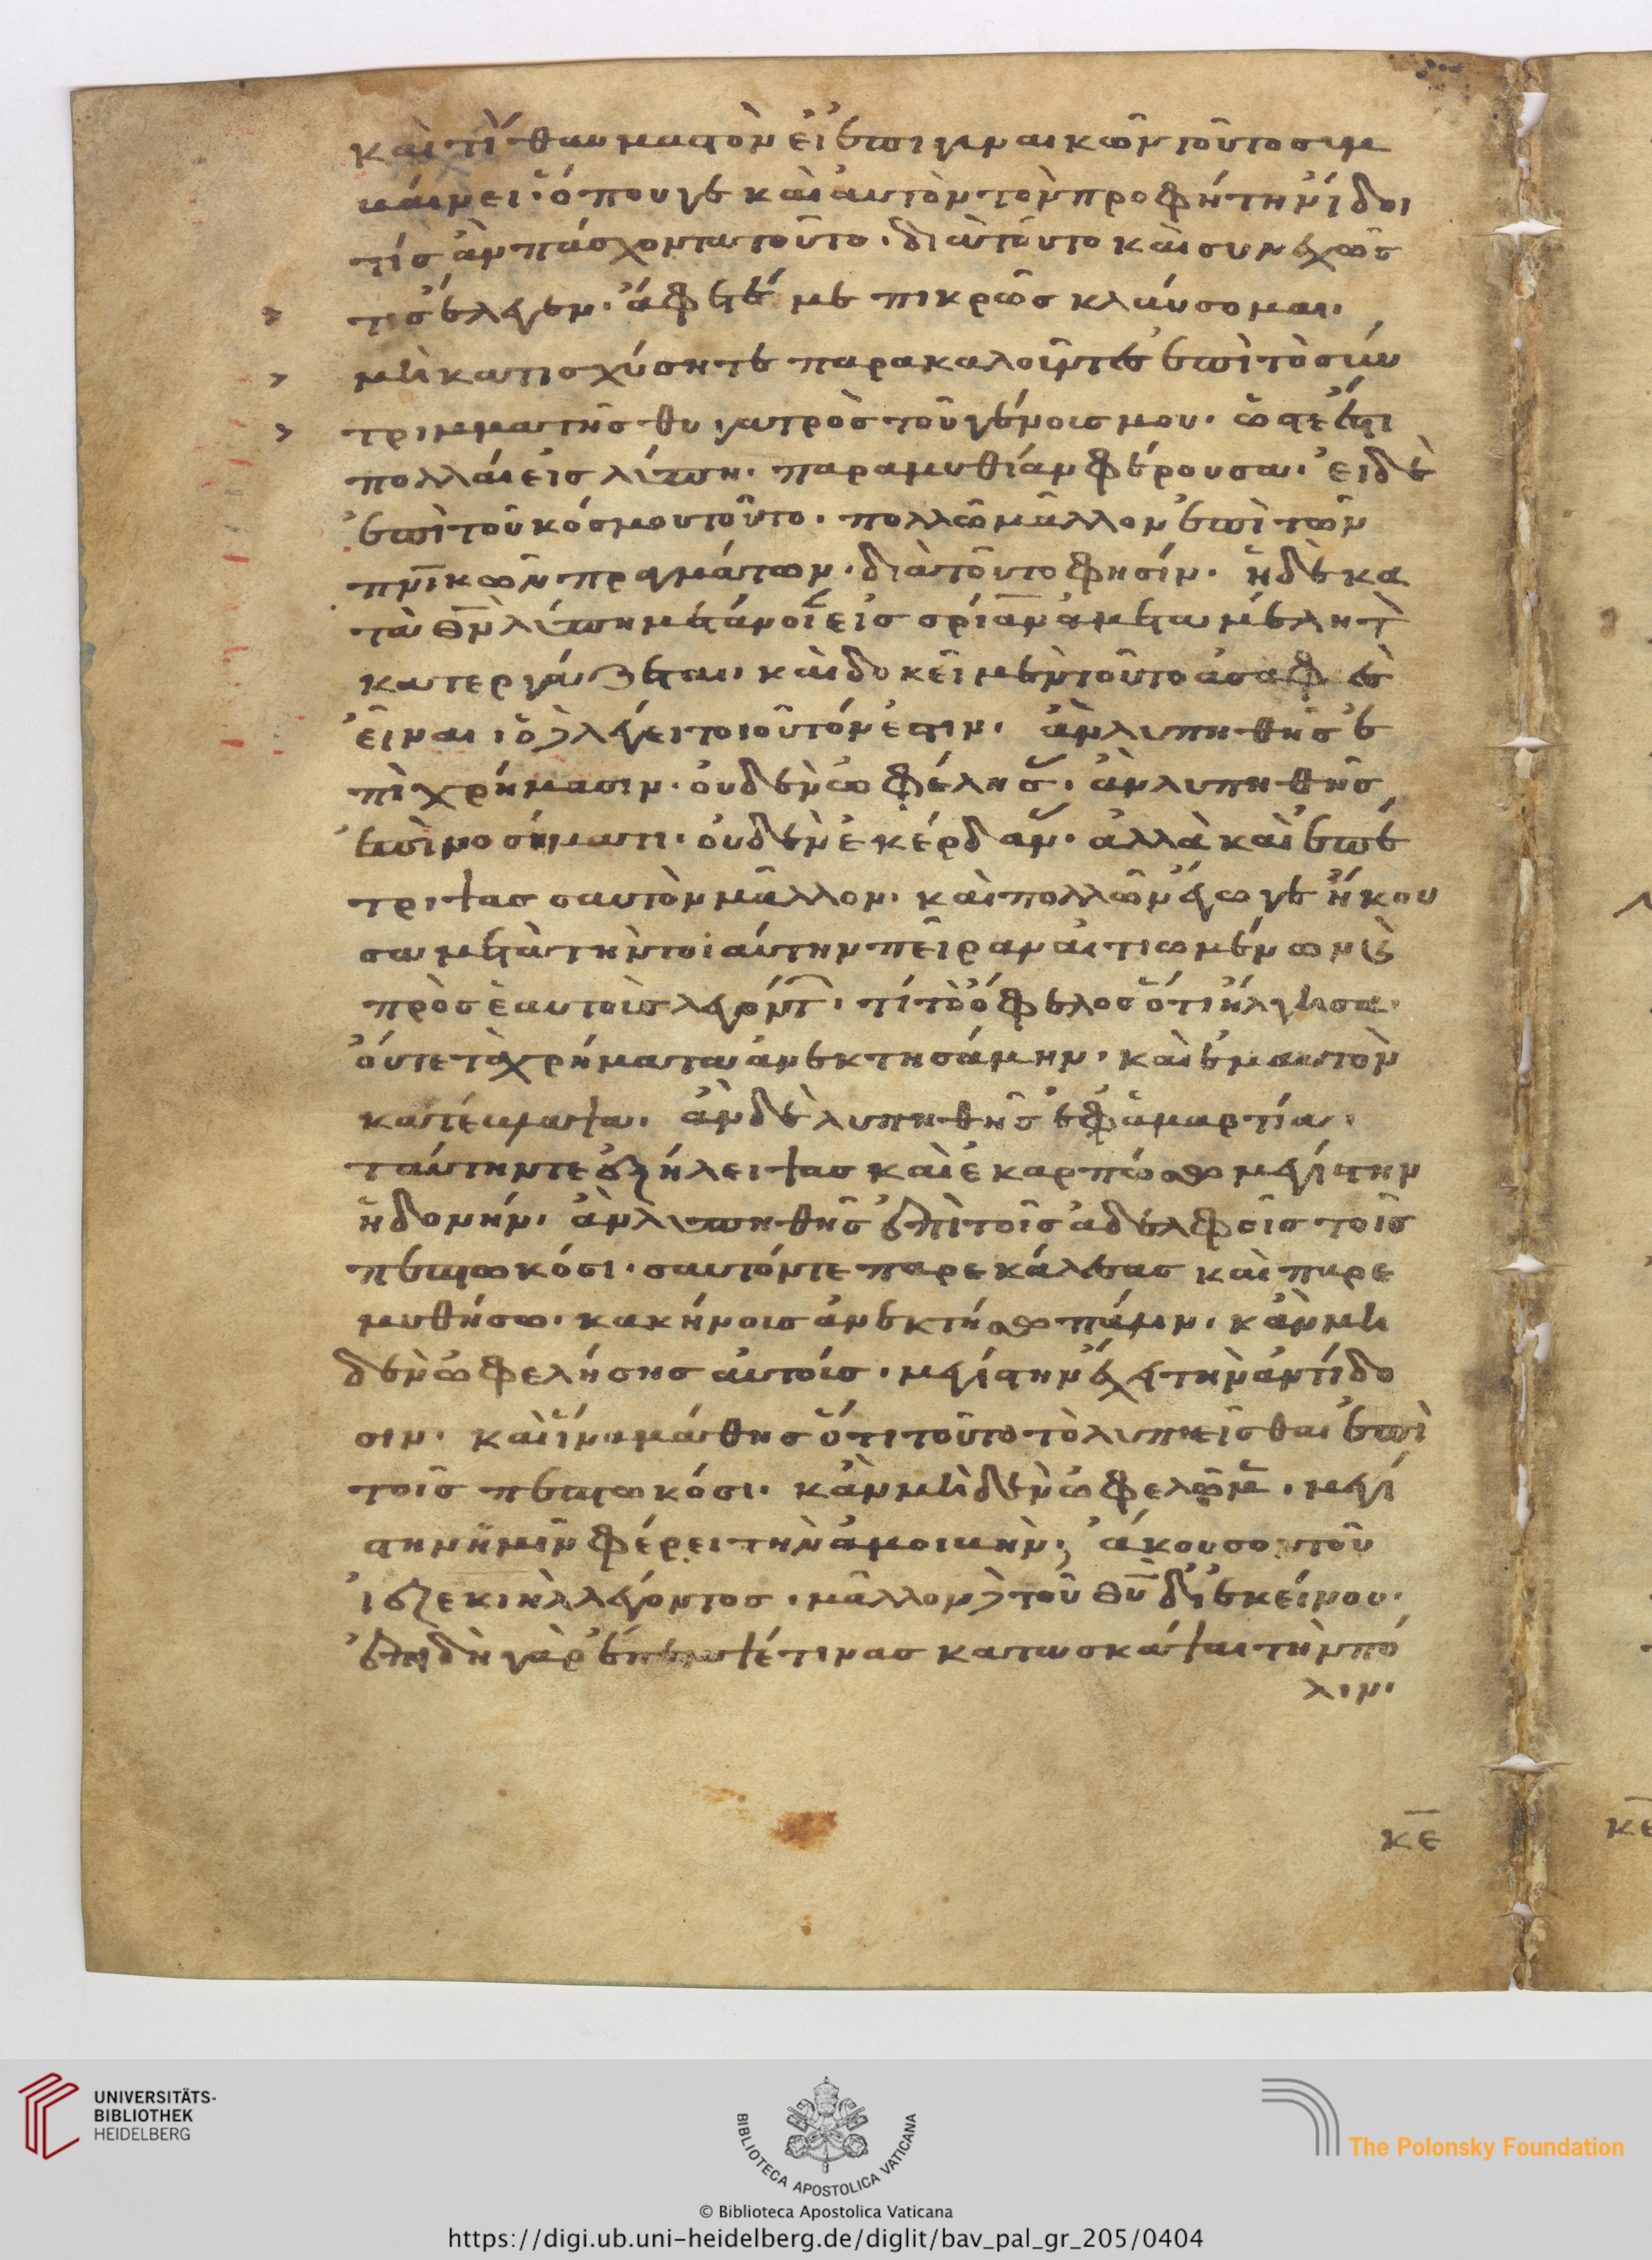 καὶ τί θαυμαστὸν εἰ ἐπι γυναικῶν τοῦτο συμ
βαίνει· ὅπου γε καὶ αὐτὸν τὸν προφήτην ἴδοι
τίς ἂν πάσχοντα τοῦτο· διατοῦτο καὶ συνεχῶς
τισ ἔλεγεν· ἄφετέ με πικρῶς κλαύσομαι·
μὴ κατισχύσητε παρακαλοῦντες ἐπὶ τὸ σύν
τριμμα τῆς θυγατρὸς τοῦ γένους μου· ὥστε ἔστι
πολλάκις λύπη· παραμυθίαν φέρουσα· εἰ δὲ
ἐπὶ τοῦ κόσμου τοῦτο· πολλῶ μᾶλλον ἐπὶ τῶν
πνικῶν πραγμάτων· διὰ τοῦτο φησίν· ἡ δὲ κα
τὰ θν λύπη μετάνοιαν εἰς σρίαν ἀμεταμέλητ
κατεργάζεται· καὶ δοκεῖ μὲν τοῦτο ἀσαφὲς
εἶναι· ὃ δὲ λέγει τοιοῦτόν ἐστιν· ἂν λυπηθῆς ἐ
πὶ χρήμασιν· οὐδὲν ὠφέλησας· ἂν λυπηθῆς
ἐπὶ νοσήματι· οὐδὲν ἐκέρδανας· ἀλλὰ καὶ ἐπέ
τριψας σαυτὸν μᾶλλον· καὶ πολλῶν ἔγωγε ἤκου
σα μετὰ τὴν τοιαύτην πεῖραν αἰτιωμένων καὶ
πρὸς ἑαυτοὺς λεγόντ· τί τὸ ὄφελος ὅτι ἤλγησα·
οὔτε τὰ χρήματα ἀνεκτησάμην· καὶ ἐμαυτὸν
κατέκαψα· ἂν δὲ λυπηθῆς ἐφ ἁμαρτία·
ταύτην τε ἐξήλειψας καὶ ἐκαρπώσω μεγίστην
ἡδονήν· ἂν λυπηθῆς ἐπὶ τοῖς ἀδελφοῖς τοῖς
πεπτωκόσι· σαυτόν τε παρεκάλεσας καὶ παρε
μυθήσω· κακήνους ἀνεκτήσω πάλιν· κἂν μη
δὲν ὠφελήσης αὐτοὺς· μεγίστην ἔχεις τὴν ἀντίδο
σιν· καὶ ἵνα μάθης ὅτι τοῦτο τὸ λυπεῖσθαι ἐπὶ
τοῖς πεπτωκόσι· κἂν μηδὲν ὠφελῶμεν· μεγί
στην ἡμῖν φέρει τὴν ἀμοιβὴν· ἄκουσον τοῦ
ἰεζεκιὴλ λέγοντος· μᾶλλον δὲ τοῦ θυ δι ἐκείνου·
ἐπειδὴ γὰρ ἔπεμψέ τινας κατασκάψαι τὴν πό
λιν·
κε
UNIVERSITÄTS-
BIBLIOTHEK
HEIDELBERG
BIBLIOTECA APOSTOLICA VATICANA
The Polonsky Foundation
© Biblioteca Apostolica Vaticana
https://digi.ub.uni-heidelberg.de/diglit/bav_pal_gr_205/0404